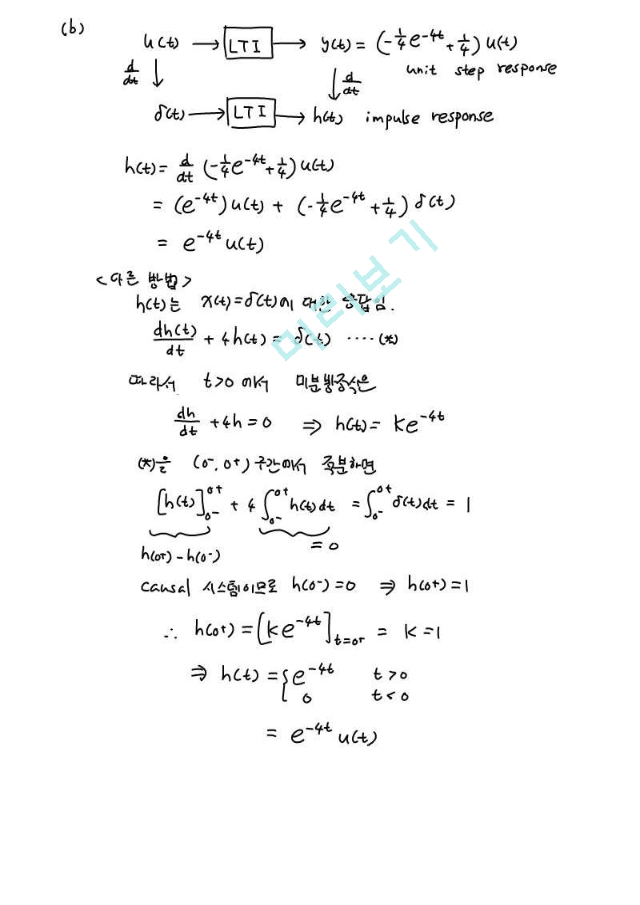 (b)
u(t) → LTI → y(t) = (-1/4 e^{-4t} + 1/4) u(t)
d/dt ↓ ↓ d/dt unit step response
δ(t) → LTI → h(t) impulse response
h(t) = d/dt (-1/4 e^{-4t} + 1/4) u(t)
= (e^{-4t}) u(t) + (-1/4 e^{-4t} + 1/4) δ(t)
= e^{-4t} u(t)
<다른 방법>
h(t)는 x(t) = δ(t)에 대한 응답임.
dh(t)/dt + 4h(t) = δ(t) ···· (*)
따라서 t>0 에서 미분방정식은
dh/dt + 4h = 0 ⇒ h(t) = ke^{-4t}
(*)을 (0-, 0+) 구간에서 적분하면
[h(t)]_{0-}^{0+} + 4∫_{0-}^{0+} h(t)dt = ∫_{0-}^{0+} δ(t)dt = 1
h(0+) - h(0-) = 0
Causal 시스템이므로 h(0-) = 0 ⇒ h(0+) = 1
∴ h(0+) = [ke^{-4t}]_{t=0+} = k = 1
⇒ h(t) = { e^{-4t} t>0
0 t<0
= e^{-4t} u(t)
미리보기